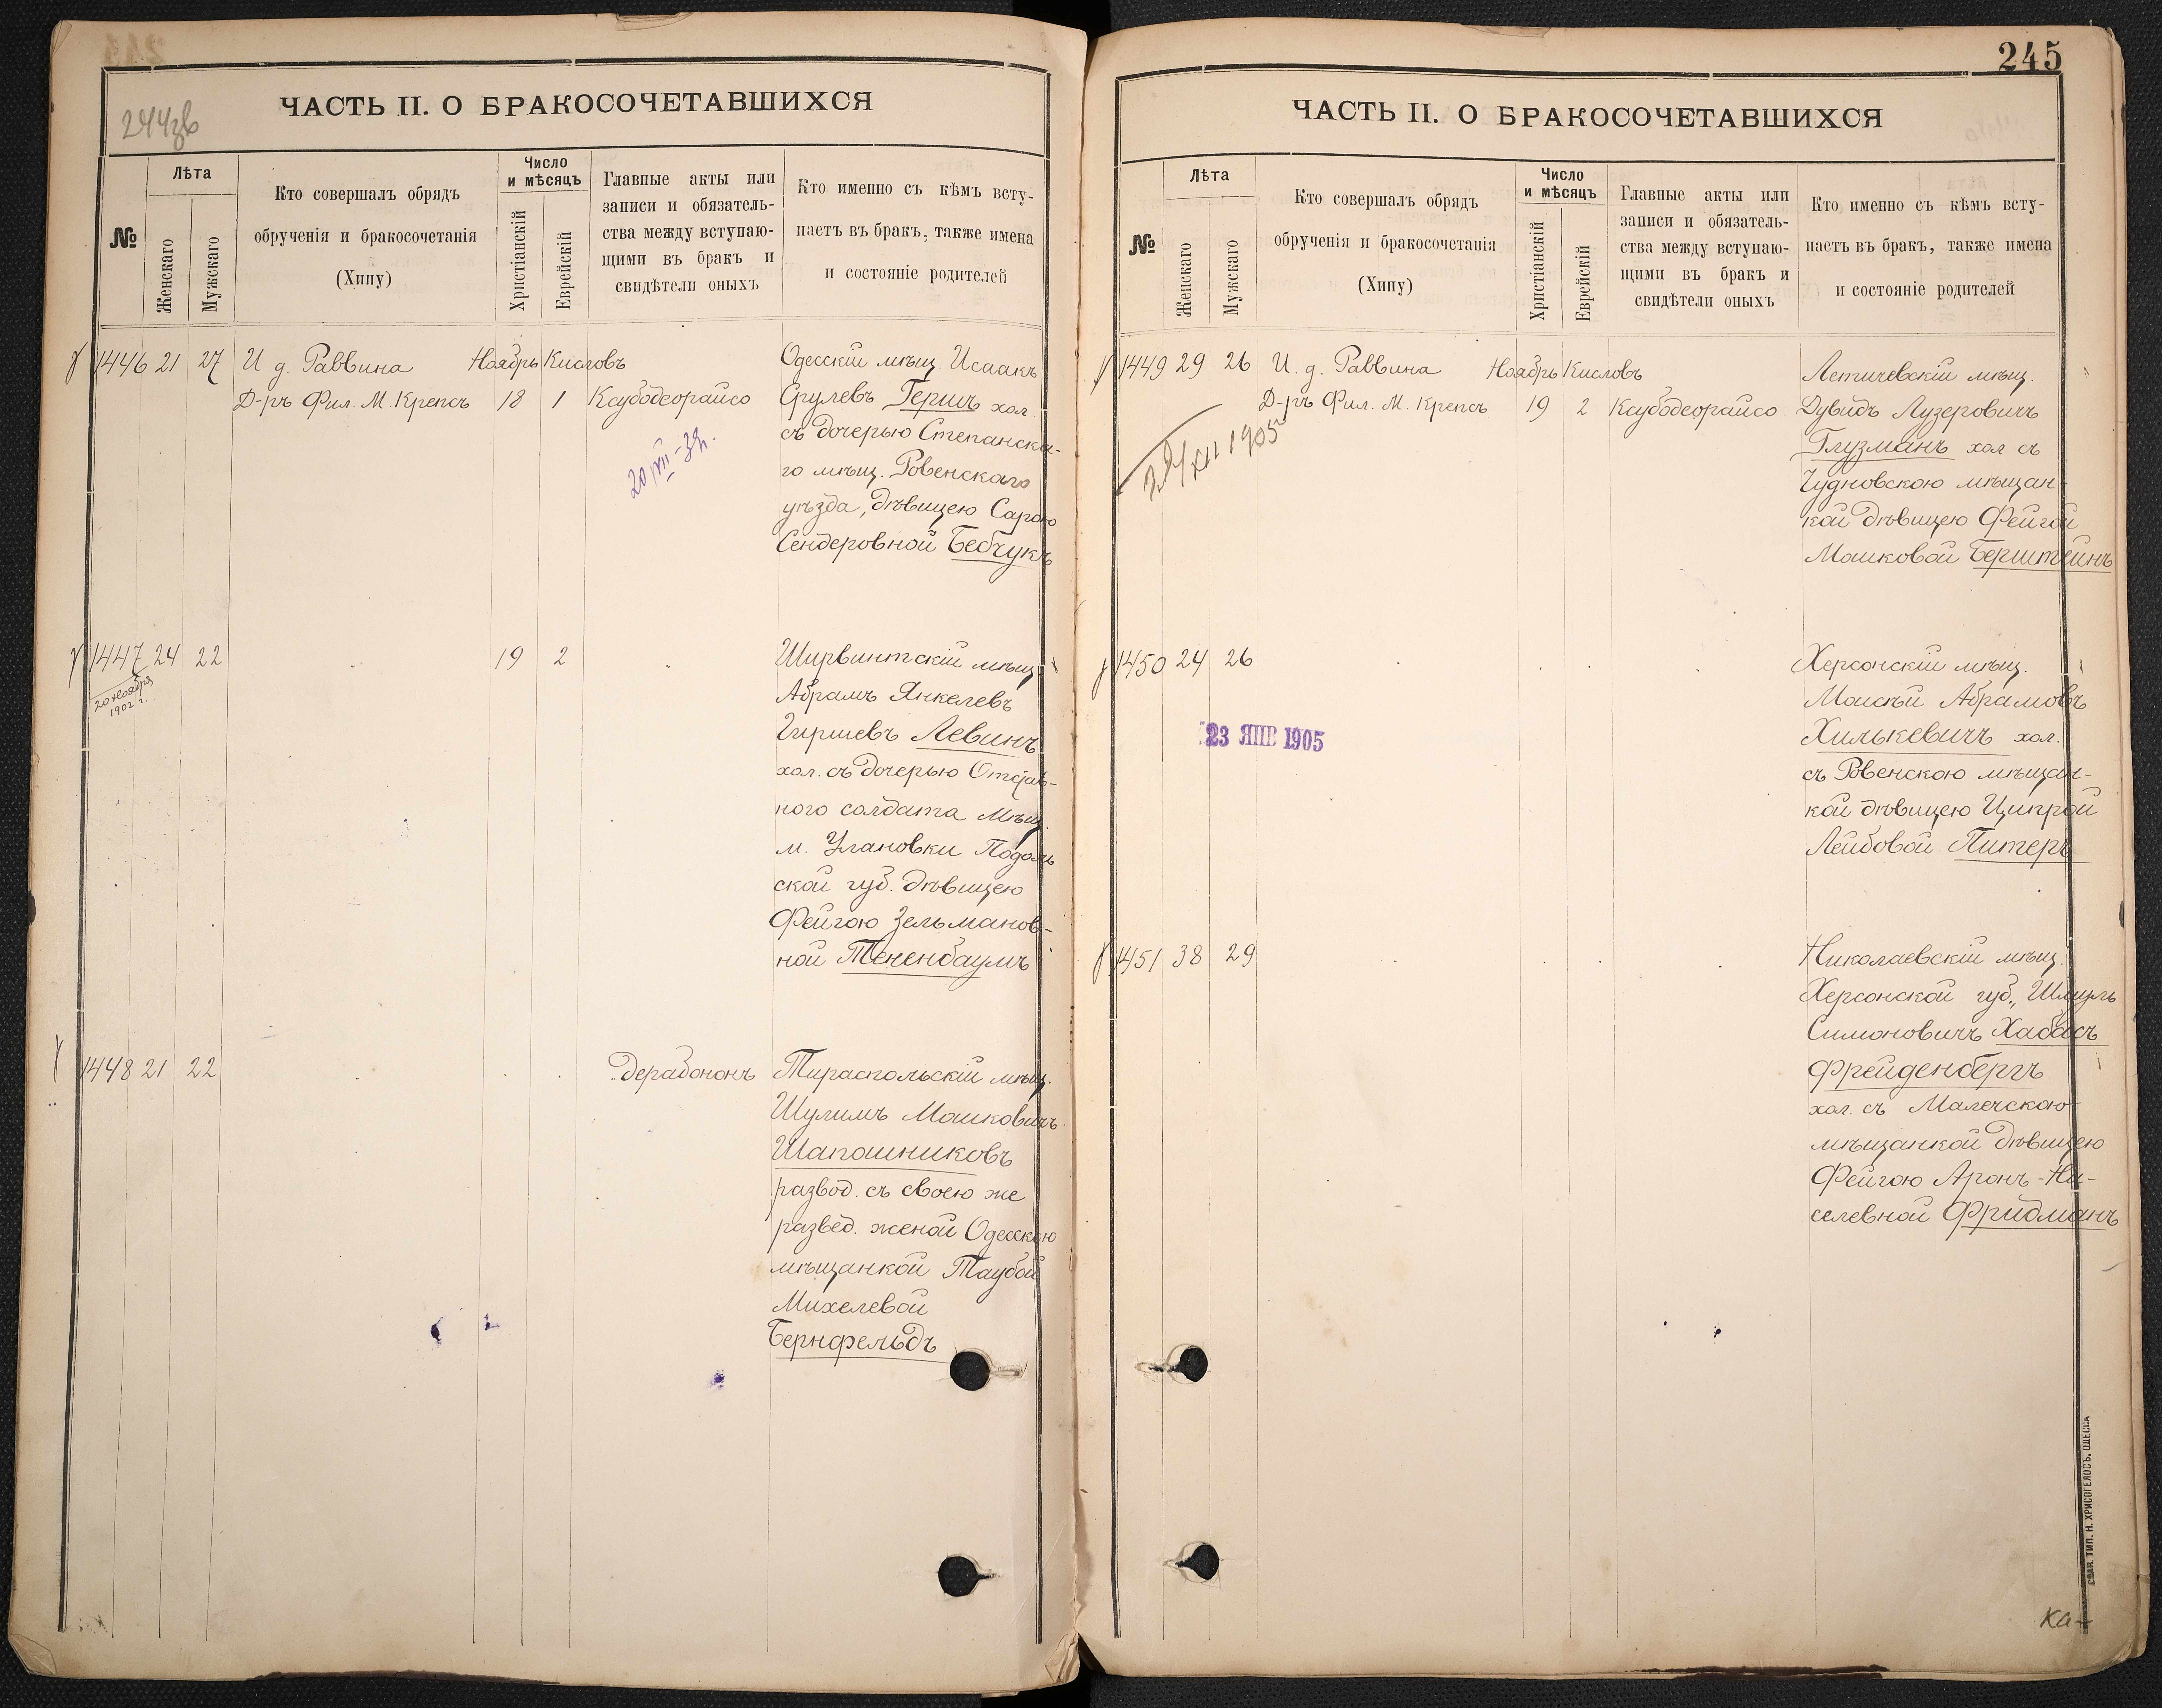 244зв
ЧАСТЬ II. О БРАКОСОЧЕТАВШИХСЯ
№
Лѣта
Женскаго
Мужскаго
Кто совершалъ обрядъ
обрученія и бракосочетанія
(Хипу)
Число
и мѣсяцъ
Христіанскій
Еврейскій
Главные акты или
записи и обязатель-
ства между вступаю-
щими въ бракъ и
свидѣтели оныхъ
Кто именно съ кѣмъ всту-
паетъ въ бракъ, также имена
и состояніе родителей
1446 21 27 И д. Раввина Ноябрь Кисловъ Одесскій мѣщ. Исаакъ
Д-ръ Фил. М. Крепсъ 18 1 Ксубодеорайсо Срулевъ Гершъ хол.
съ дочерью Степанска-
го мѣщ. Ровенскаго
уѣзда, дѣвицею Сарою
Сендеровной Бебчукъ
1447 24 22 19 2 Ширвинтскій мѣщ.
20 Ноября
1902 г.
Абрамъ Янкелевъ
Гиршевъ Левинъ
хол. съ дочерью Отстав-
ного солдата мѣщ.
м. Улановки Подоль
ской губ. дѣвицею
Фейгою Зельманов-
ной Тененбаумъ
1448 21 22 Дерабононъ Тираспольскій мѣщ.
Шулимъ Мошковичъ
Шапошниковъ
развод. съ своею же
развед. женой Одесскою
мѣщанкой Таубой
Михелевой
Бернфельдъ
245
ЧАСТЬ II. О БРАКОСОЧЕТАВШИХСЯ
№
Лѣта
Женскаго
Мужскаго
Кто совершалъ обрядъ
обрученія и бракосочетанія
(Хипу)
Число
и мѣсяцъ
Христіанскій
Еврейскій
Главные акты или
записи и обязатель-
ства между вступаю-
щими въ бракъ и
свидѣтели оныхъ
Кто именно съ кѣмъ всту-
паетъ въ бракъ, также имена
и состояніе родителей
1449 29 26 И. д. Раввина Ноябрь Кисловъ Летичевскій мѣщ.
Д-ръ Фил. М. Крепсъ 19 2 Ксубодеорайсо Дувидъ Лузеровичъ
XII 1905
Глузманъ хол съ
Чудновскою мѣщан-
кой дѣвицею Фейгой
Мошковой Берштейнъ
1450 24 26 Херсонскій мѣщ.
Моисѣй Абрамовъ
23 ЯНВ 1905
Хилькевичъ хол.
съ Ровенскою мѣщан-
кой дѣвицею Ципрой
Лейбовой Питеръ
1451 38 29 Николаевскій мѣщ.
Херсонской губ., Шмуль
Симоновичъ Хабасъ
Фрейденбергъ
хол. съ Малечскою
мѣщанкой дѣвицею
Фейгою Аронъ-На-
селевной Фридманъ
СЛАВ. ТИП. Н. ХРИСОГЕЛОСЪ. ОДЕССА
Ка-